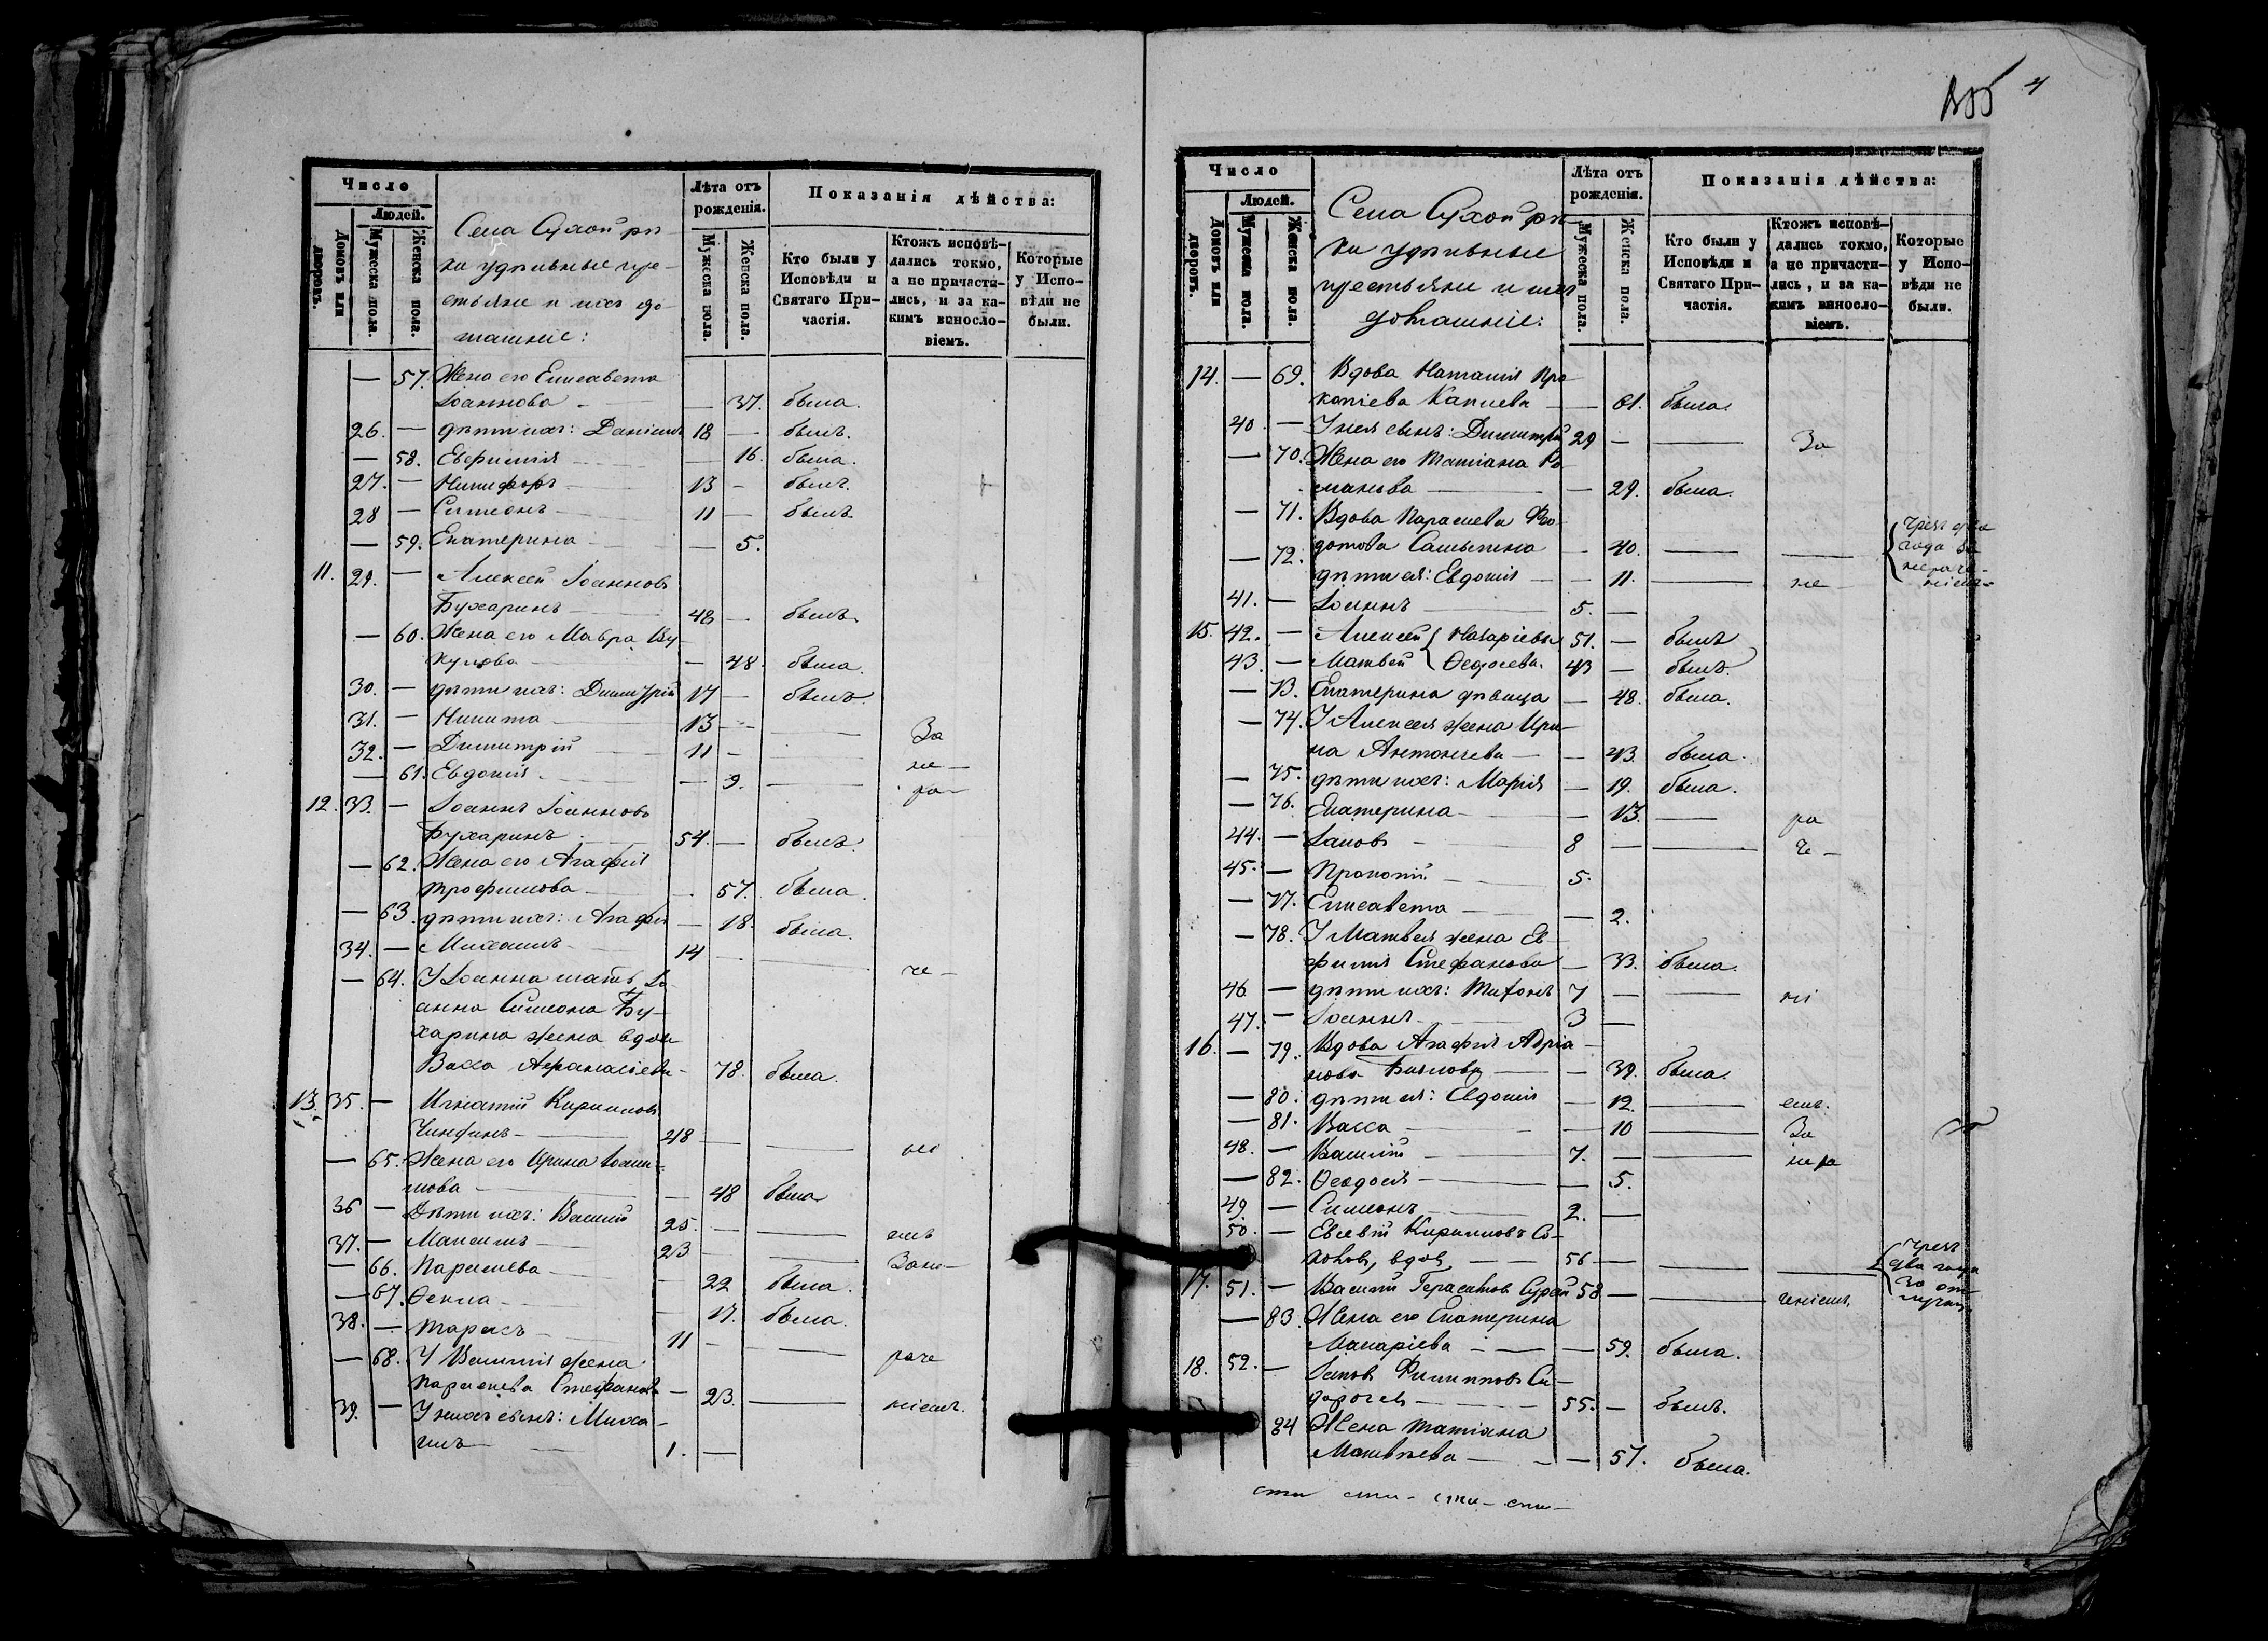 Число
Людей.
Домовъ или дворовъ.
Мужеска пола.
Женска пола.
Села Сухой рѣ-
ки удѣльные кре-
стьяне и ихъ до-
машніе:
Лѣта отъ рожденія.
Мужеска пола.
Женска пола.
Показанія дѣйства:
Кто были у Исповѣди и Святаго При-частія.
Ктожъ исповѣ-дались токмо, а не причасти-лись, и за ка-кимъ винослo-віемъ.
Которые у Испо-вѣди не были.
— 57. Жена его Елисавета
Іоаннова — — 37. была.
26. — дѣти ихъ: Даніилъ 18 — былъ.
— 58. Евфимія — — 16. была.
27. — Никифоръ — 13 — былъ.
28 — Симеонъ — 11 — былъ
— 59. Екатерина — — 5.
11. 29. — Алексей Іоанновъ
Бухаринъ — 48 — былъ.
— 60. Жена его Мавра Ву-
кулова — — 48. была.
30. — дѣти ихъ: Димитрій 17 — былъ.
31. — Никита — 13 — — За
32. — Димитрій — 11 — не —
— 61. Евдокія — — 9. — ра —
12. 33. — Іоаннъ Іоанновъ
Бухаринъ — 54. — былъ.
— 62. Жена его Агафія
Трофимова — — 57. была.
— 63. дѣти ихъ: Агафія — 18. была.
34. — Михаилъ — 14 — — че —
— 64. У Іоанна мать, Іо-
анна Симеона Бу-
харина жена вдова
Васса Афанасіева — 78. была.
13. 35. — Игнатій Кириловъ
Чинфинъ — 48 — — ні
— 65. Жена его Ирина Іоан-
нова — — 48 была
36 — Дѣти ихъ: Василій 25. — — емъ
37. — Максимъ — 23 — — Зане —
— 66. Параскева — — 22 была.
— 67. Фекла — — 17. была.
38. — Тарасъ — 11 — — раче
— 68. У Василія жена
Параскева Стефанова — 23. — ніемъ.
39. — У нихъ сынъ: Миха-
илъ — 1. —
4
Число
Людей.
Домовъ или дворовъ.
Мужеска пола.
Женска пола.
Села Сухой рѣ-
ки удѣльные
крестьяне и ихъ
домашніе:
Лѣта отъ рожденія.
Мужеска пола.
Женска пола.
Показанія дѣйства:
Кто были у Исповѣди и Святаго При-частія.
Ктожъ исповѣ-дались токмо, а не причасти-лись, и за ка-кимъ винослo-віемъ.
Которые у Испо-вѣди не были.
14. — 69. Вдова Наталія Про-
копіева Капиева — — 61. была.
40. — У нея сынъ: Димитрій 29 — — За
— 70. Жена его Татіана Ро-
манова — — 29. была.
— 71. Вдова Параскева Фео-
дотова Салыкина — 40. — — { чрезъ два года за нераче-ніемъ
— 72. дѣти ея: Евдокія — — 11. — не
41. — Іоаннъ — 5. —
15. 42. — Алексей { Назаріевы 51. — былъ
43. — Матвей { Федосеевы 43 — былъ.
— 73. Екатерина дѣвица — 48. была.
— 74. У Алексея жена Ири-
на Антониева — — 43. была.
— 75. дѣти ихъ: Марія — 19. была.
— 76. Екатерина — — 13. — ра
44. — Іаковъ — 8 — — че —
45. — Прокопій — 5.
— 77. Елисавета — — 2.
— 78. У Матвея жена Ев-
фимія Стефанова — 33. была.
46 — дѣти ихъ: Тихонъ 7 — — ні
47. — Іоаннъ — 3 —
16. — 79. Вдова Агафія Адріа-
нова Бѣлова — — 39. была.
— 80. дѣти ея: Евдокія — 12. — емъ.
— 81. Васса — — 10 — За
48. — Василій — 7. — — нера
— 82. Феодосія — — 5.
49. — Симеонъ — 2. —
50. — Евсевій Кириловъ Со-
коловъ, вдовъ — 56 — — — { чрезъ два года по от-лучкѣ
17. 51. — Василій Герасимовъ 58 — — ченіемъ,
— 83. Жена его Екатерина
Макаріева — — 59. была.
18. 52. — Іаковъ Филипповъ Си-
доровъ — 55. — былъ.
84 Жена Татіана
Матвѣева — — 57. была.